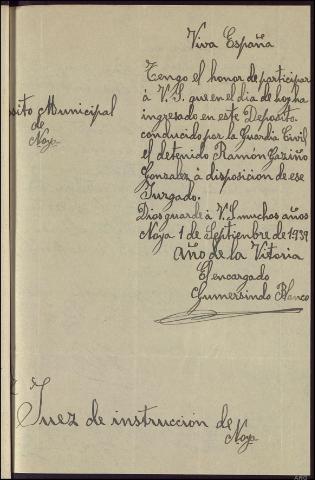 Viva España
Tengo el honor de participar
á V.S. que en el dia de hoy ha
ingresado en este Deposito.
conducido por la Guardia Civil
el detenido Ramón Gaziño
Gonzalez á disposicion de ese
Jurgado.
Dios guarde á V.S. muchos años
Noya 1 de Septienbre de 1939
año de la Vitoria
El encargado
Gumersindo Blanco
sito Municipal
de
Noya
Juez de instrucción de
Noya